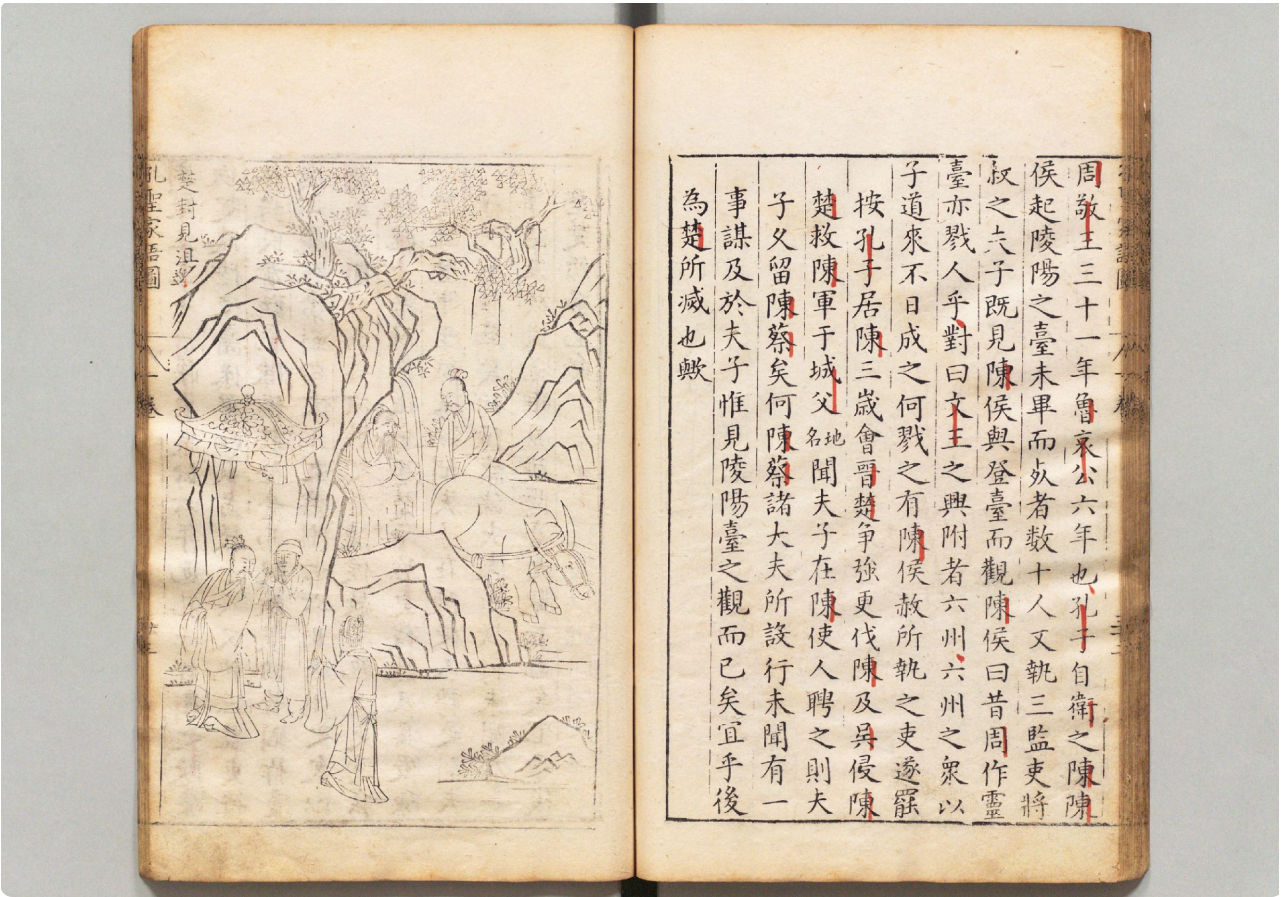 周敬王三十一年魯哀公六年也孔子自衛之陳陳
侯起陵陽之臺未畢而死者数十人又執三監吏將
殺之夫子既見陳侯與登臺而觀陳侯曰昔周作靈
臺亦戮人乎對曰文王之興附者六州六州之衆以
子道來不日成之何戮之有陳侯赦所執之吏遂罷
按孔子居陳三歳會晋楚争強更伐陳及吳侵陳
楚救陳軍于城父地名聞夫子在陳使人聘之則夫
子久留陳蔡矣何陳蔡諸大夫所設行未聞有一
事謀及於夫子惟見陵陽臺之觀而已矣宜乎後
為楚所滅也歟
楚封見沮
孔聖家語圖
八一卷